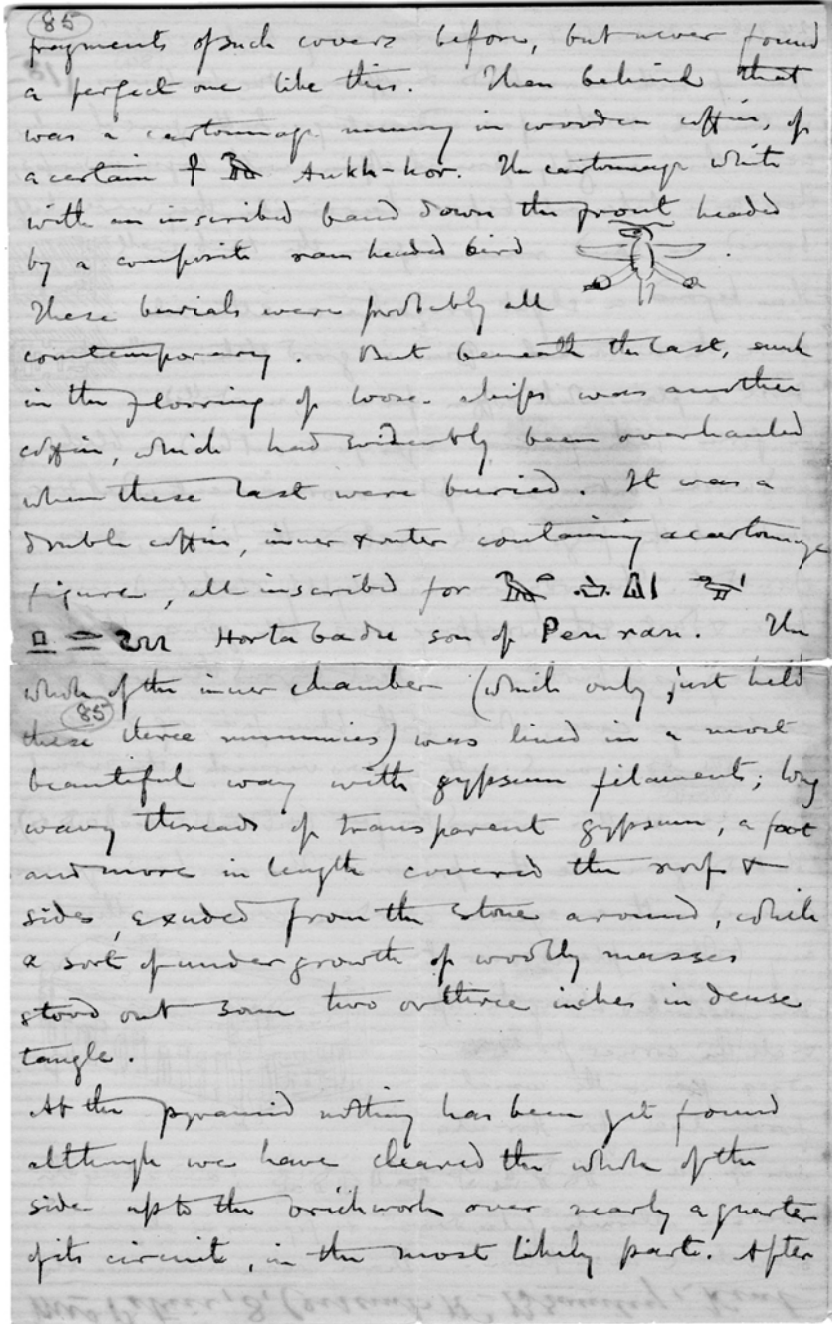 85
fragments of such covers before, but never found
a perfect one like this. Then behind that
was a cartonnage mummy in wooden coffin, of
a certain Ankh-hor. The cartonnage white
with an inscribed band down the front headed
by a composite ram headed bird
These burials were probably all
contemporary. But beneath the last, sunk
in the flooring of loose chips was another
coffin, which had evidently been overhauled
when these last were buried. It was a
double coffin, inner & outer containing a cartonnage
figure, all inscribed for
Horta badu son of Pen ran. The
whole of the inner chamber (which only just held
85
these three mummies) was lined in a most
beautiful way with gypsum filaments; long
wavy threads of transparent gypsum, a foot
and more in length covered the roof &
sides, exuded from the stone around, while
a sort of undergrowth of woolly masses
stood out some two or three inches in dense
tangle.
At the pyramid nothing has been yet found
although we have cleared the whole of the
side up to the brickwork over nearly a quarter
of its circuit, in the most likely parts. After